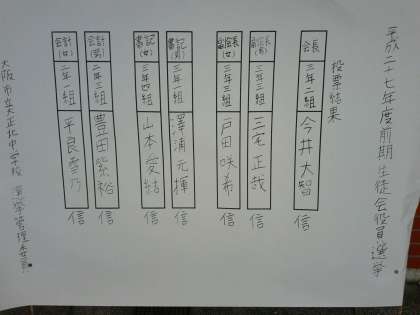 平成二十七年度前期生徒会役員選挙
投票結果
会長 三年二組 今井大智 信
副会長(男) 三年三組 三宅正哉 信
副会長(女) 三年三組 戸田咲希 信
書記(男) 三年一組 澤浦元揮 信
書記(女) 三年四組 山本愛結 信
会計(男) 二年三組 豊田紫裕 信
会計(女) 二年一組 平良雪乃 信
大阪市立大正北中学校 選挙管理委員